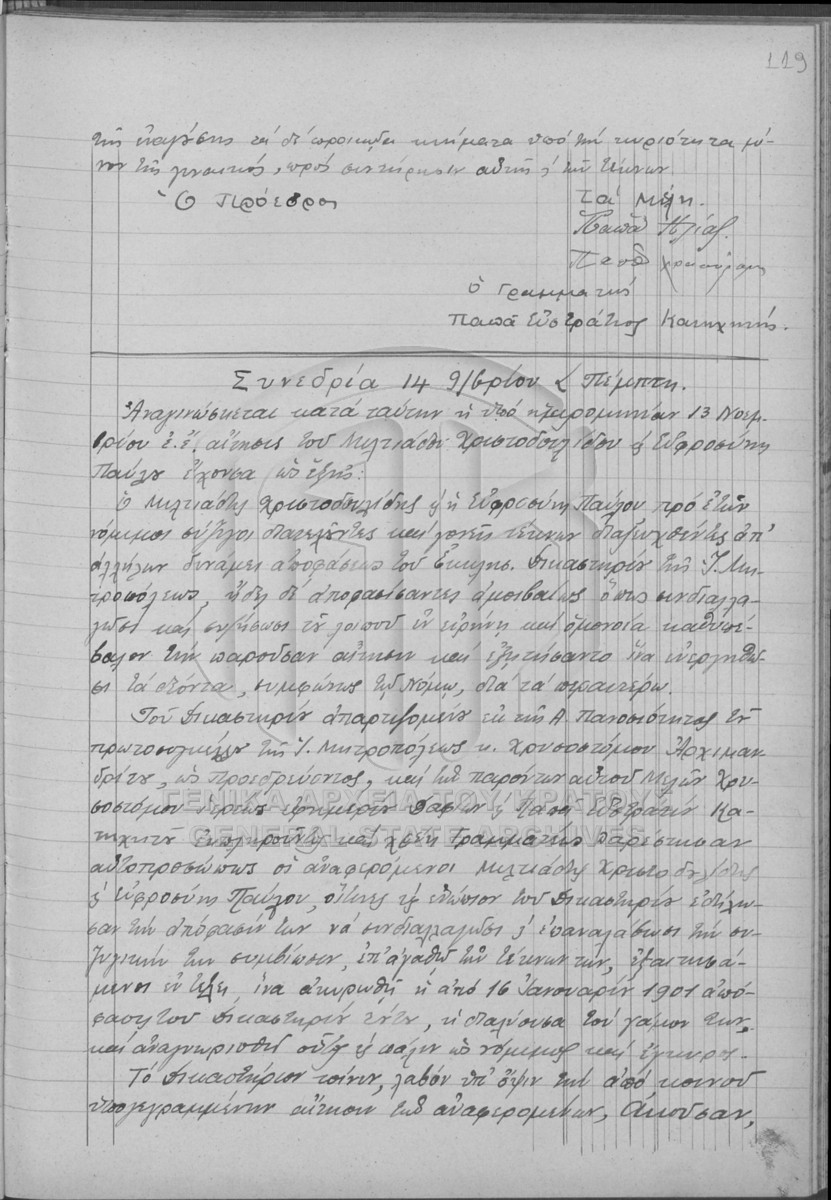 119
τῆς ἐναγούσης τὰ δὲ προικῷα κτήματα ὑπὸ τὴν κυριότητα μό-
νον τῆς γυναικός, πρὸς συντήρησιν αὐτῆς ϗ τῶν τέκνων.
Ὁ Πρόεδρος
Τὰ Μέλη.
Παπᾶ Ηλίας
Παπᾶ
ὁ Γραμματεὺς
Παπᾶ Εὐστράτιος Κατηχητής.
Συνεδρία 14 9/βρίου Πέμπτη.
Ἀναγινώσκεται κατὰ ταύτην ἡ ὑπὸ ἡμερομηνίαν 13 Νοεμ-
βρίου ἐ.ἔ. αἴτησις τοῦ Μιλτιάδου Χριστοδουλίδου ϗ Εὐφροσύνης
Παύλου ἔχουσα ὡς ἑξῆς:
Ὁ Μιλτιάδης Χριστοδουλίδης ϗ ἡ Εὐφροσύνη Παύλου πρὸ ἐτῶν
νόμιμοι σύζυγοι διατελοῦντες καὶ γονεῖς τέκνων διαζευχθέντες ἀπ'
ἀλλήλων δυνάμει ἀποφάσεως τοῦ Ἐκκλησ. Δικαστηρίου τῆς Ἱ. Μη-
τροπόλεως, ἤδη δὲ ἀποφασίσαντες ἀμοιβαίως ὅπως συνδιαλλα-
γῶσι καὶ συζήσωσι τοῦ λοιποῦ ἐν εἰρήνῃ καὶ ὁμονοίᾳ καθυπέ-
βαλον τὴν παροῦσαν αἴτησιν καὶ ἐξῃτήσαντο ἵνα ἐνεργηθῶ-
σι τὰ δέοντα, συμφώνως τῷ Νόμῳ, διὰ τὰ περαιτέρω.
Τοῦ Δικαστηρίου ἀπαρτιζομένου ἐκ τῆς Α. Πανοσιότητος τοῦ
πρωτοσυγκέλλου τῆς Ἱ. Μητροπόλεως κ. Χρυσοστόμου Ἀρχιμαν-
δρίτου, ὡς προεδρεύοντος, καὶ τῶν παρόντων αὐτοῦ Μελῶν Χρυ-
σοστόμου ἱερέως ἐφημερίου ϗ Παπᾶ Εὐστρατίου Κα-
τηχητοῦ ἐκπληροῦντος καὶ χρέη Γραμματέως παρέστησαν
αὐτοπροσώπως οἱ ἀναφερόμενοι Μιλτιάδης Χριστοδουλίδης
ϗ Εὐφροσύνη Παύλου, οἵτινες ϗ ἐνώπιον τοῦ Δικαστηρίου ἐδήλω-
σαν τὴν ἀπόφασίν των νὰ συνδιαλλαγῶσι ϗ ἐπαναλάβωσι τὴν συ-
ζυγικήν των συμβίωσιν, ἐπ' ἀγαθῷ τῶν τέκνων των, ἐξαιτησά-
μενοι ἐν τέλει ἵνα ἀκυρωθῇ ἡ ἀπὸ 16 Ἰανουαρίου 1901 ἀπό-
φασις τοῦ Δικαστηρίου τούτου, ἡ διαλύουσα τὸν γάμον των,
καὶ ἀναγνωρισθῇ οὗτος ϗ πάλιν ὡς νόμιμος καὶ ἔγκυρος.-
Τὸ Δικαστήριον τοίνυν, λαβὸν ὑπ' ὄψιν τὴν ἀπὸ κοινοῦ
ὑπογεγραμμένην αἴτησιν τῶν ἀναφερομένων, Ἀκοῦσαν,
ΓΕΝΙΚΑ ΑΡΧΕΙΑ ΤΟΥ ΚΡΑΤΟΥΣ
GENERAL STATE ARCHIVES